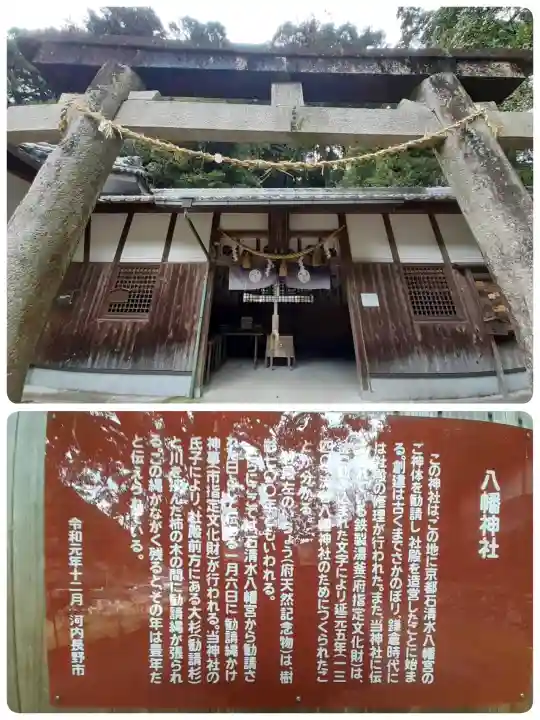 八幡神社
この神社は、この地に京都石清水八幡宮の
ご神体を勧請し、社殿を造営したことに始ま
る。創建は古くまでさかのぼり、鎌倉時代に
は社殿の修理が行われた。また当神社に伝
鉄製湯釜(府指定文化財)は、
まれた文字により延元五年(一三
四〇
八幡神社のためにつくられたこ
とが分かる。
左の
ちょう(府天然記念物)は、樹
〇〇年ともいわれる。
石清水八幡宮から勧請さ
れた日
る一月六日に勧請縄かけ
神事(市指定文化財)が行われる。当神社の
氏子により、社殿前方にある大杉(勧請杉)
と川を挟んだ柿の木の間に勧請縄が張られ
る。この縄がながく残ると、その年は豊年だ
と伝えら
ている。
令和元年十二月 河内長野市